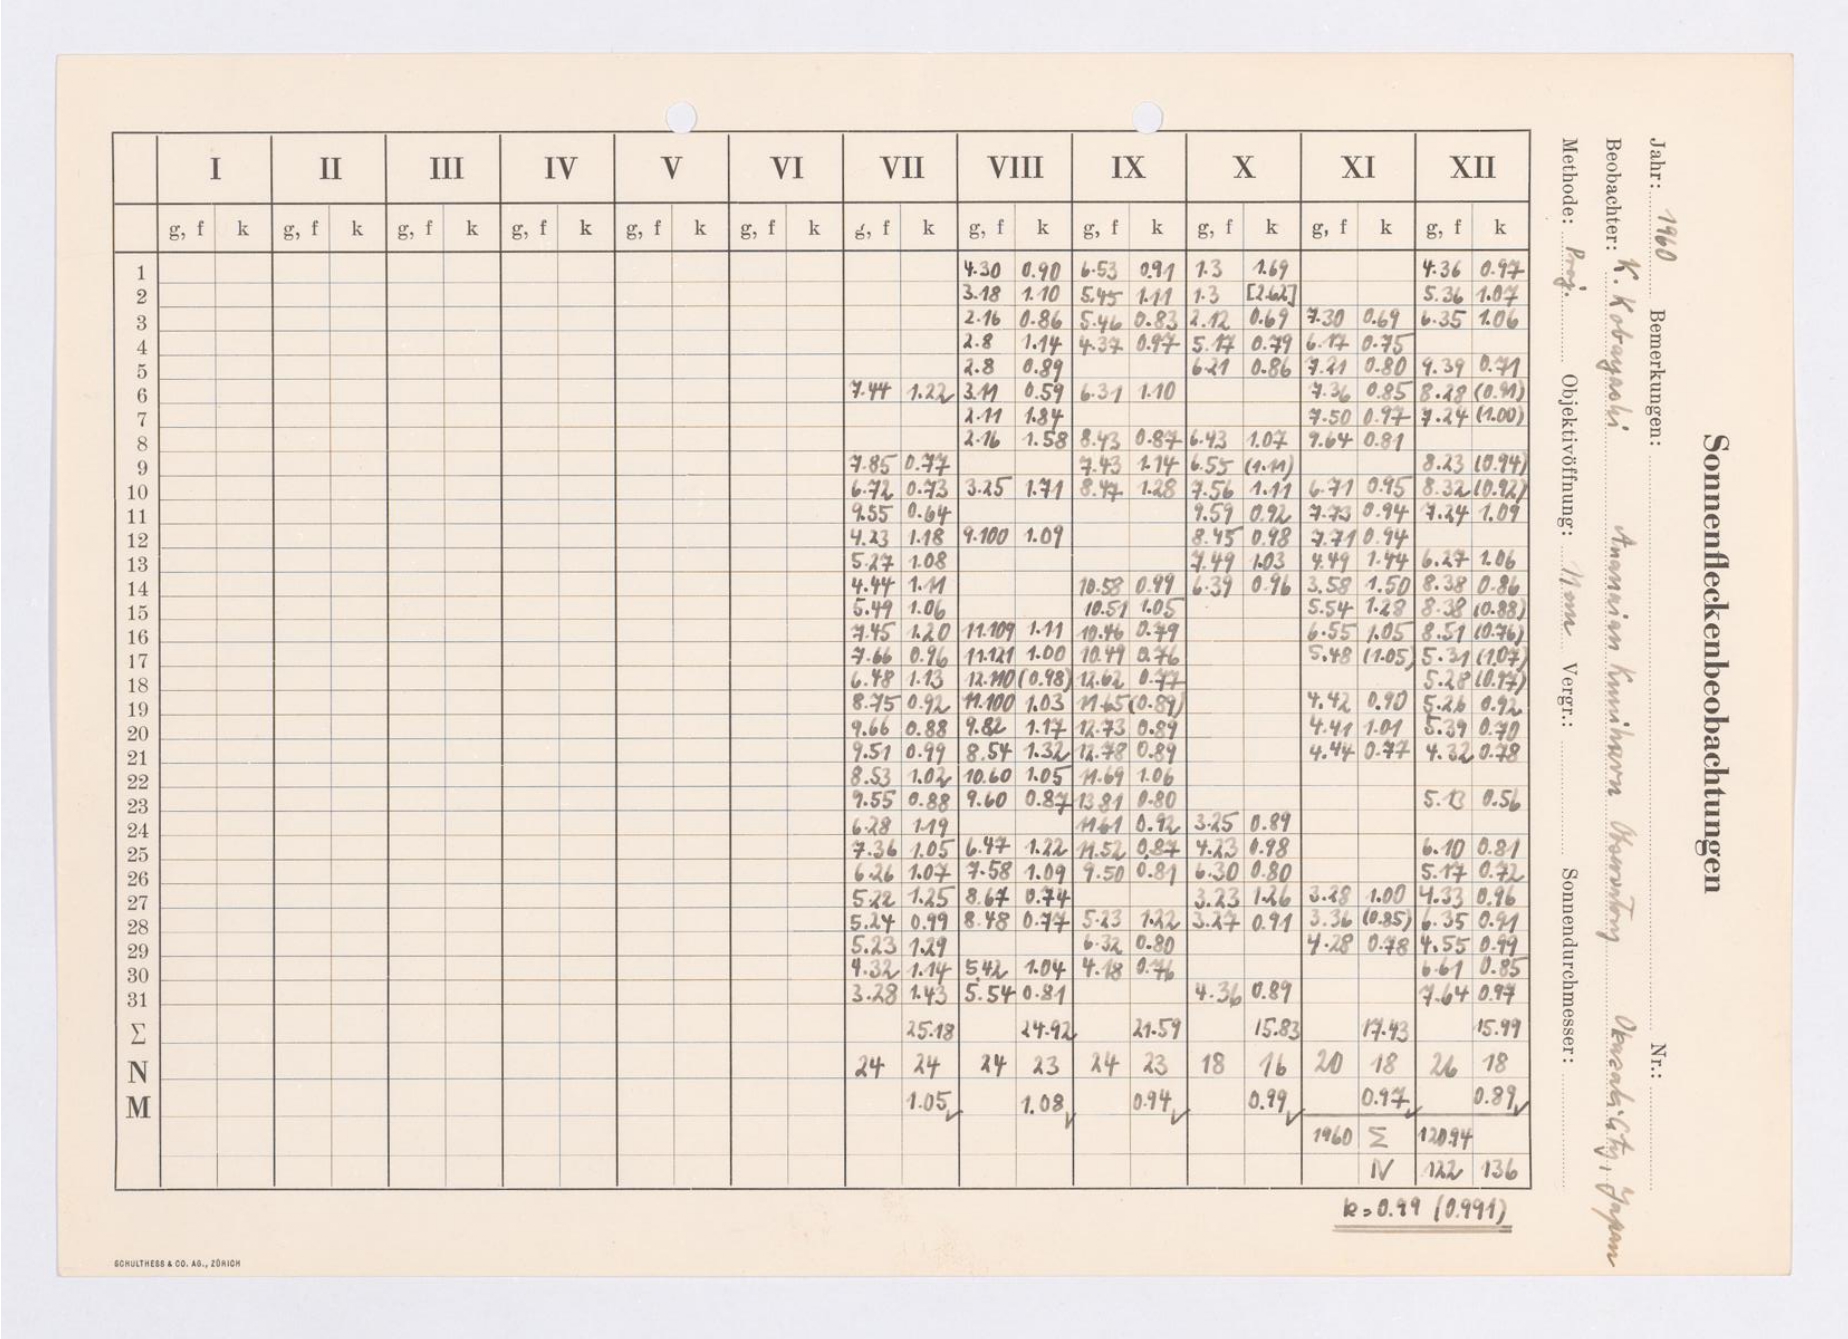 Sonnenfleckenbeobachtungen
Jahr: 1960 Bemerkungen: Nr.:
Beobachter: K. Kobayashi Amanaian Kunihara Observatory Okazaki City, Japan
Methode: Proj. Objektivöffnung: Vergr.: Sonnendurchmesser:
I II III IV V VI VII VIII IX X XI XII
g, f k g, f k g, f k g, f k g, f k g, f k g, f k g, f k g, f k g, f k g, f k g, f k
1 4.30 0.90 6.53 0.91 1.3 1.69 4.36 0.97
2 3.18 1.10 5.45 1.11 1.3 [2.62] 5.36 1.07
3 2.16 0.86 5.46 0.83 2.12 0.69 7.30 0.69 6.35 1.06
4 2.8 1.14 4.37 0.97 5.17 0.79 6.17 0.75
5 2.8 0.89 6.21 0.86 7.21 0.80 9.39 0.71
6 7.44 1.22 3.11 0.59 6.31 1.10 7.36 0.85 8.28 (0.91)
7 2.11 1.84 7.50 0.97 7.24 (1.00)
8 2.16 1.58 8.43 0.87 6.43 1.07 9.64 0.81
9 7.85 0.77 7.43 1.14 6.55 (1.11) 8.23 (0.94)
10 6.72 0.73 3.25 1.71 8.47 1.28 7.56 1.11 6.71 0.95 8.32 (0.92)
11 9.55 0.64 9.59 0.92 7.73 0.94 7.24 1.09
12 4.23 1.18 9.100 1.09 8.45 0.98 7.71 0.94
13 5.27 1.08 7.49 1.03 4.49 1.44 6.27 1.06
14 4.44 1.11 10.58 0.99 6.39 0.96 3.58 1.50 8.38 0.86
15 5.49 1.06 10.51 1.05 5.54 1.28 8.38 (0.88)
16 7.45 1.20 11.109 1.11 10.46 0.79 6.55 1.05 8.51 (0.76)
17 7.66 0.96 11.121 1.00 10.49 0.76 5.48 (1.05) 5.31 (1.07)
18 6.48 1.13 12.110 (0.98) 12.62 0.77 5.28 (0.97)
19 8.75 0.92 11.100 1.03 11.65 (0.89) 4.42 0.90 5.26 0.92
20 9.66 0.88 9.82 1.17 12.73 0.89 4.41 1.01 5.39 0.70
21 9.51 0.99 8.54 1.32 12.78 0.89 4.44 0.77 4.32 0.78
22 8.53 1.02 10.60 1.05 11.69 1.06
23 9.55 0.88 9.60 0.87 13 81 0.80 5.13 0.56
24 6.28 1.19 11.61 0.92 3.25 0.89
25 7.36 1.05 6.47 1.22 11.52 0.87 4.23 0.98 6.10 0.81
26 6.26 1.07 7.58 1.09 9.50 0.81 6.30 0.80 5.17 0.72
27 5.22 1.25 8.67 0.74 3.23 1.26 3.28 1.00 4.33 0.96
28 5.24 0.99 8.48 0.77 5.23 1.22 3.27 0.91 3.36 (0.85) 6.35 0.91
29 5.23 1.29 6.32 0.80 4.28 0.78 4.55 0.99
30 4.32 1.14 5.42 1.04 4.18 0.76 6.61 0.85
31 3.28 1.43 5.54 0.81 4.36 0.89 7.64 0.97
Σ 25.18 24.92 21.59 15.83 17.43 15.99
N 24 24 24 23 24 23 18 16 20 18 26 18
M 1.05 1.08 0.94 0.99 0.97 0.89
1960 Σ 120.94
N 122 136
k = 0.99 (0.991)
SCHULTHESS & CO. AG., ZÜRICH